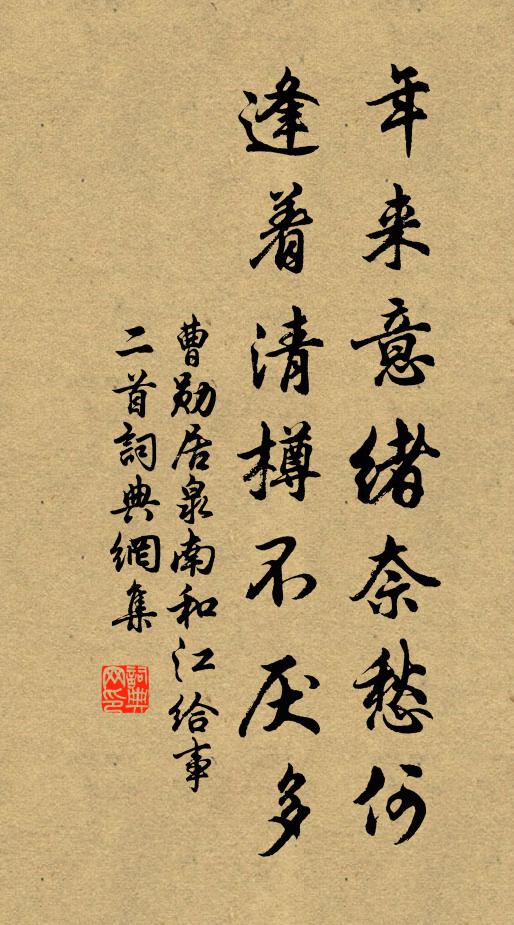 年来意緒奈愁何
逢着清樽不厌多
曹勛居泉南和江給事
二首詞典網集
詞典网印